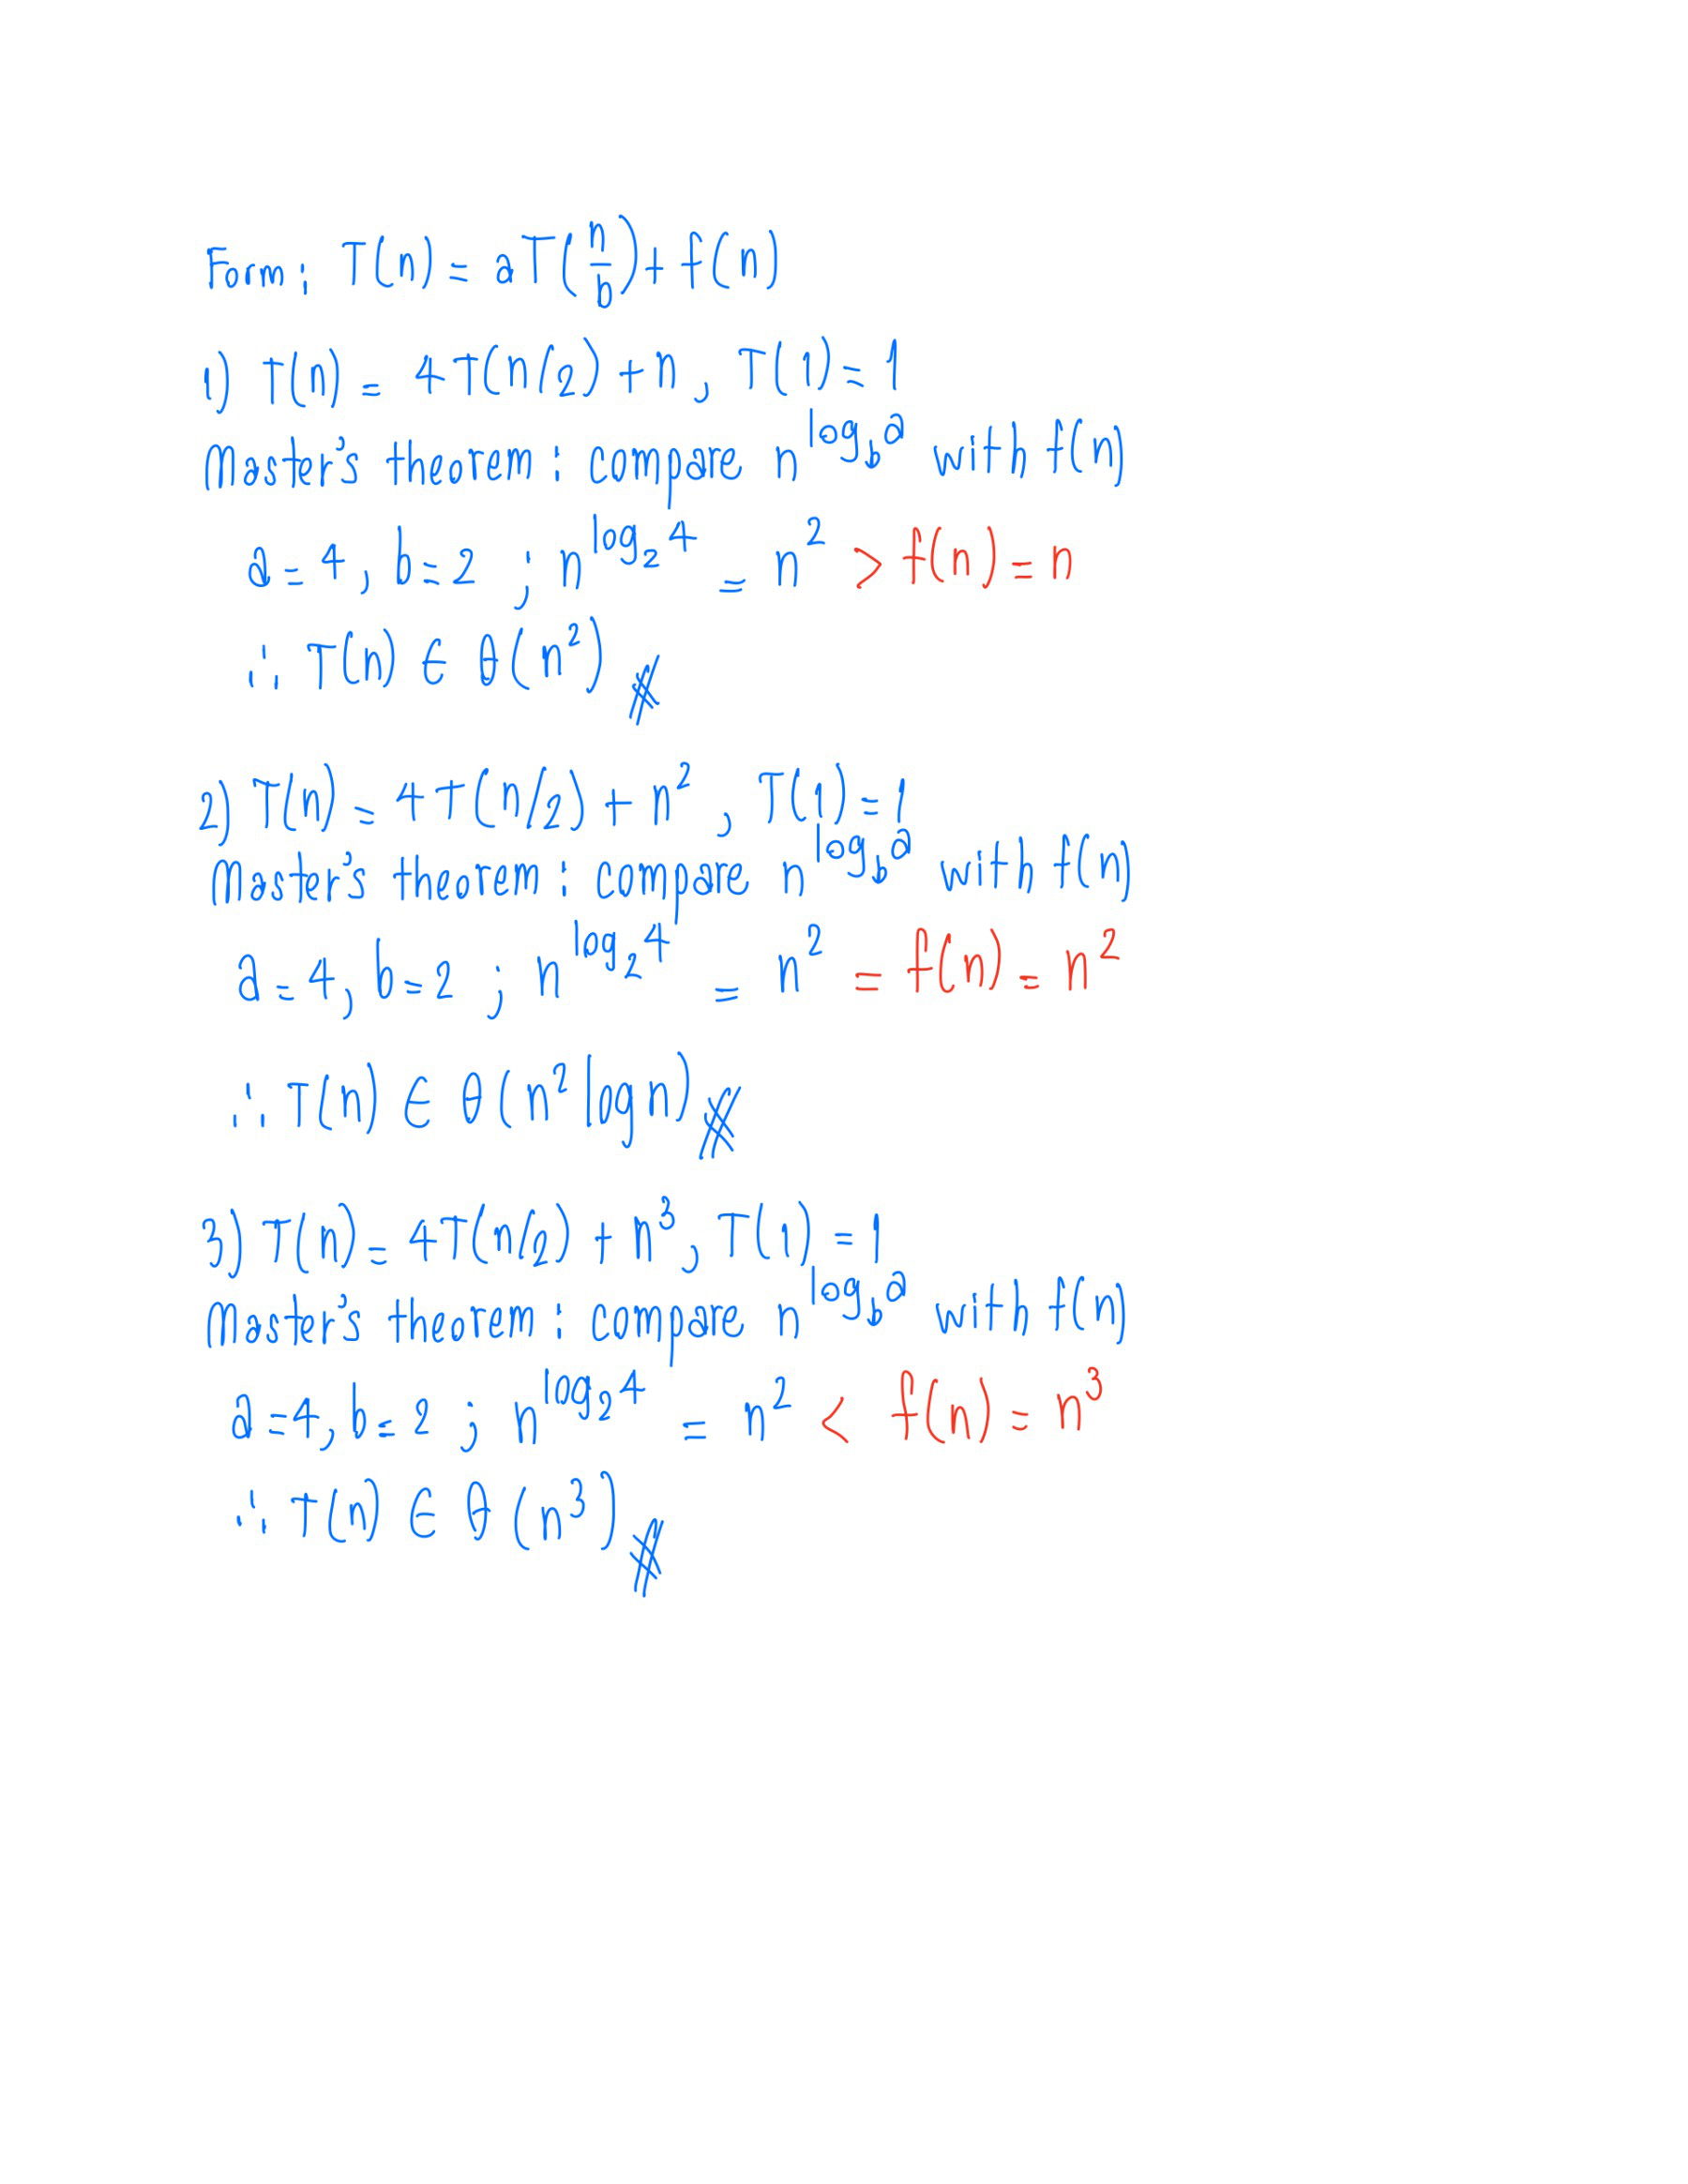 Form: T(n) = aT(n/b) + f(n)
1) T(n) = 4T(n/2) + n, T(1) = 1
Master's theorem : compare n^log_b a with f(n)
a = 4, b = 2 ; n^log_2 4 = n² > f(n) = n
∴ T(n) ∈ θ(n²)
2) T(n) = 4T(n/2) + n², T(1) = 1
Master's theorem : compare n^log_b a with f(n)
a = 4, b = 2 ; n^log_2 4 = n² = f(n) = n²
∴ T(n) ∈ θ(n² log n)
3) T(n) = 4T(n/2) + n³, T(1) = 1
Master's theorem : compare n^log_b a with f(n)
a = 4, b = 2 ; n^log_2 4 = n² < f(n) = n³
∴ T(n) ∈ θ(n³)